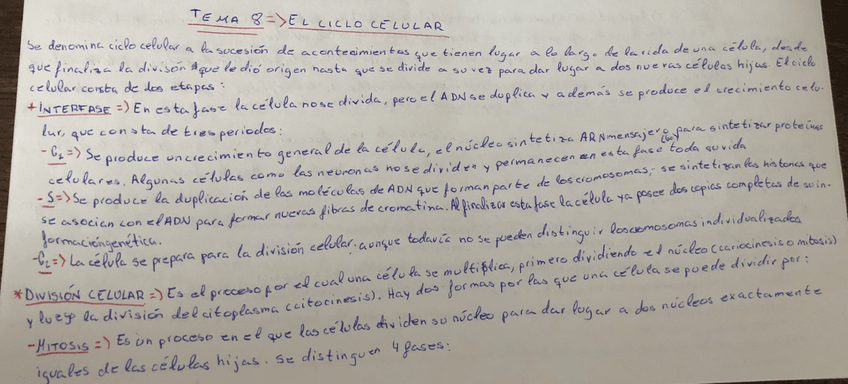 TEMA 8 => EL CICLO CELULAR
Se denomina ciclo celular a la sucesión de acontecimientos que tienen lugar a lo largo de la vida de una célula, desde
que finaliza la división que le dió origen hasta que se divide a su vez para dar lugar a dos nuevas células hijas. El ciclo
celular consta de dos etapas:
* INTERFASE => En esta fase la célula no se divida, pero el ADN se duplica y además se produce el crecimiento celu-
lar, que consta de tres periodos:
- G1 => Se produce un crecimiento general de la célula, el núcleo sintetiza ARN mensajero para sintetizar proteínas
celulares. Algunas células como las neuronas no se dividen y permanecen en esta fase toda su vida
- S => Se produce la duplicación de las moléculas de ADN que forman parte de los cromosomas, se sintetizan las histonas que
se asocian con el ADN para formar nuevas fibras de cromatina. Al finalizar esta fase la célula ya posee dos copias completas de su in-
formación genética.
- G2 => La célula se prepara para la división celular, aunque todavía no se pueden distinguir los cromosomas individualizados
* DIVISIÓN CELULAR => Es el proceso por el cual una célula se multiplica, primero dividiendo el núcleo (cariocinesis o mitosis)
y luego la división del citoplasma (citocinesis). Hay dos formas por las que una célula se puede dividir por:
- MITOSIS => Es un proceso en el que las células dividen su núcleo para dar lugar a dos núcleos exactamente
iguales de las células hijas. Se distinguen 4 fases: